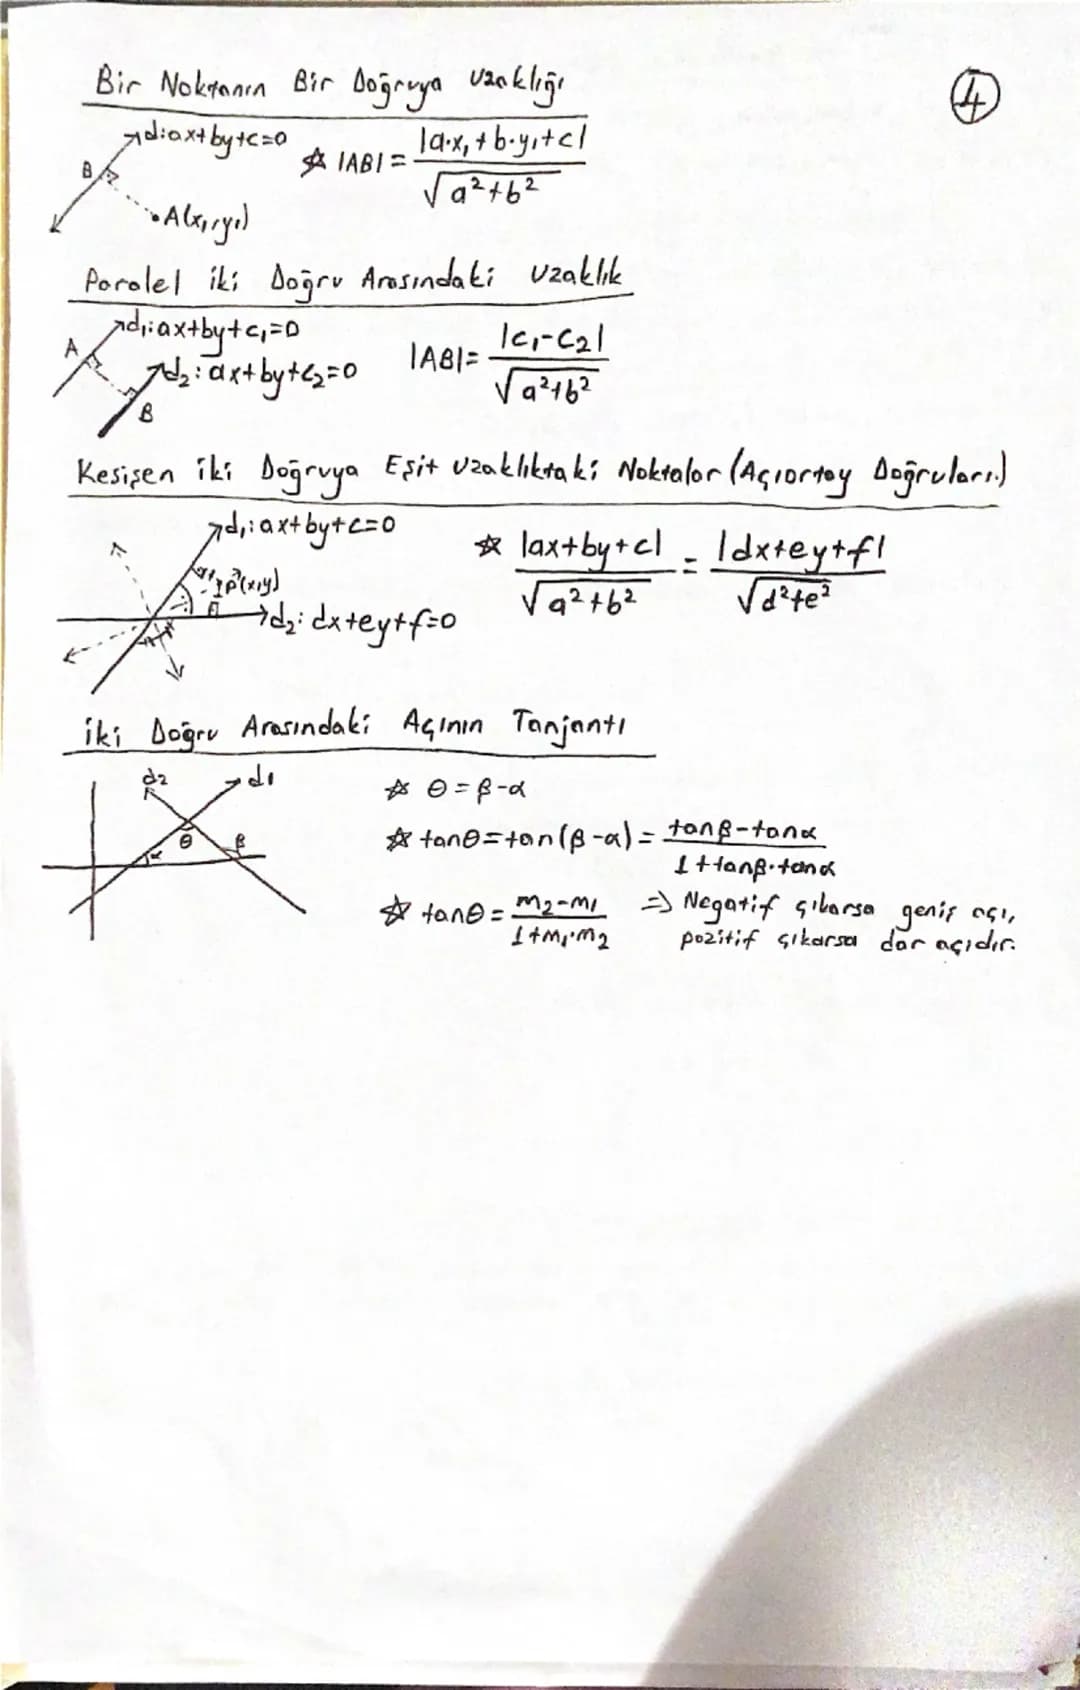 Bir Noktanın Bir Doğruya Uzaklığı
4
d: ax+by+c=0
B
☆ |AB| = |a·x₁+b·y₁+c| / √a²+b²
A(x₁,y₁)
Paralel iki Doğru Arasındaki Uzaklık
d₁: ax+by+c₁=0
A
d₂: ax+by+c₂=0
B
|AB| = |c₁-c₂| / √a²+b²
Kesişen iki Doğruya Eşit Uzaklıktaki Noktalar (Açıortay Doğruları)
d₁: ax+by+c=0
P(x,y)
d₂: dx+ey+f=0
☆ |ax+by+c| / √a²+b² = |dx+ey+f| / √d²+e²
iki Doğru Arasındaki Açının Tanjantı
d2 d1
θ α β
☆ θ = β-α
☆ tanθ = tan(β-α) = tanβ-tanα / 1+tanβ·tanα
☆ tanθ = m₂-m₁ / 1+m₁·m₂ ⇒ Negatif çıkarsa geniş açı,
pozitif çıkarsa dar açıdır.